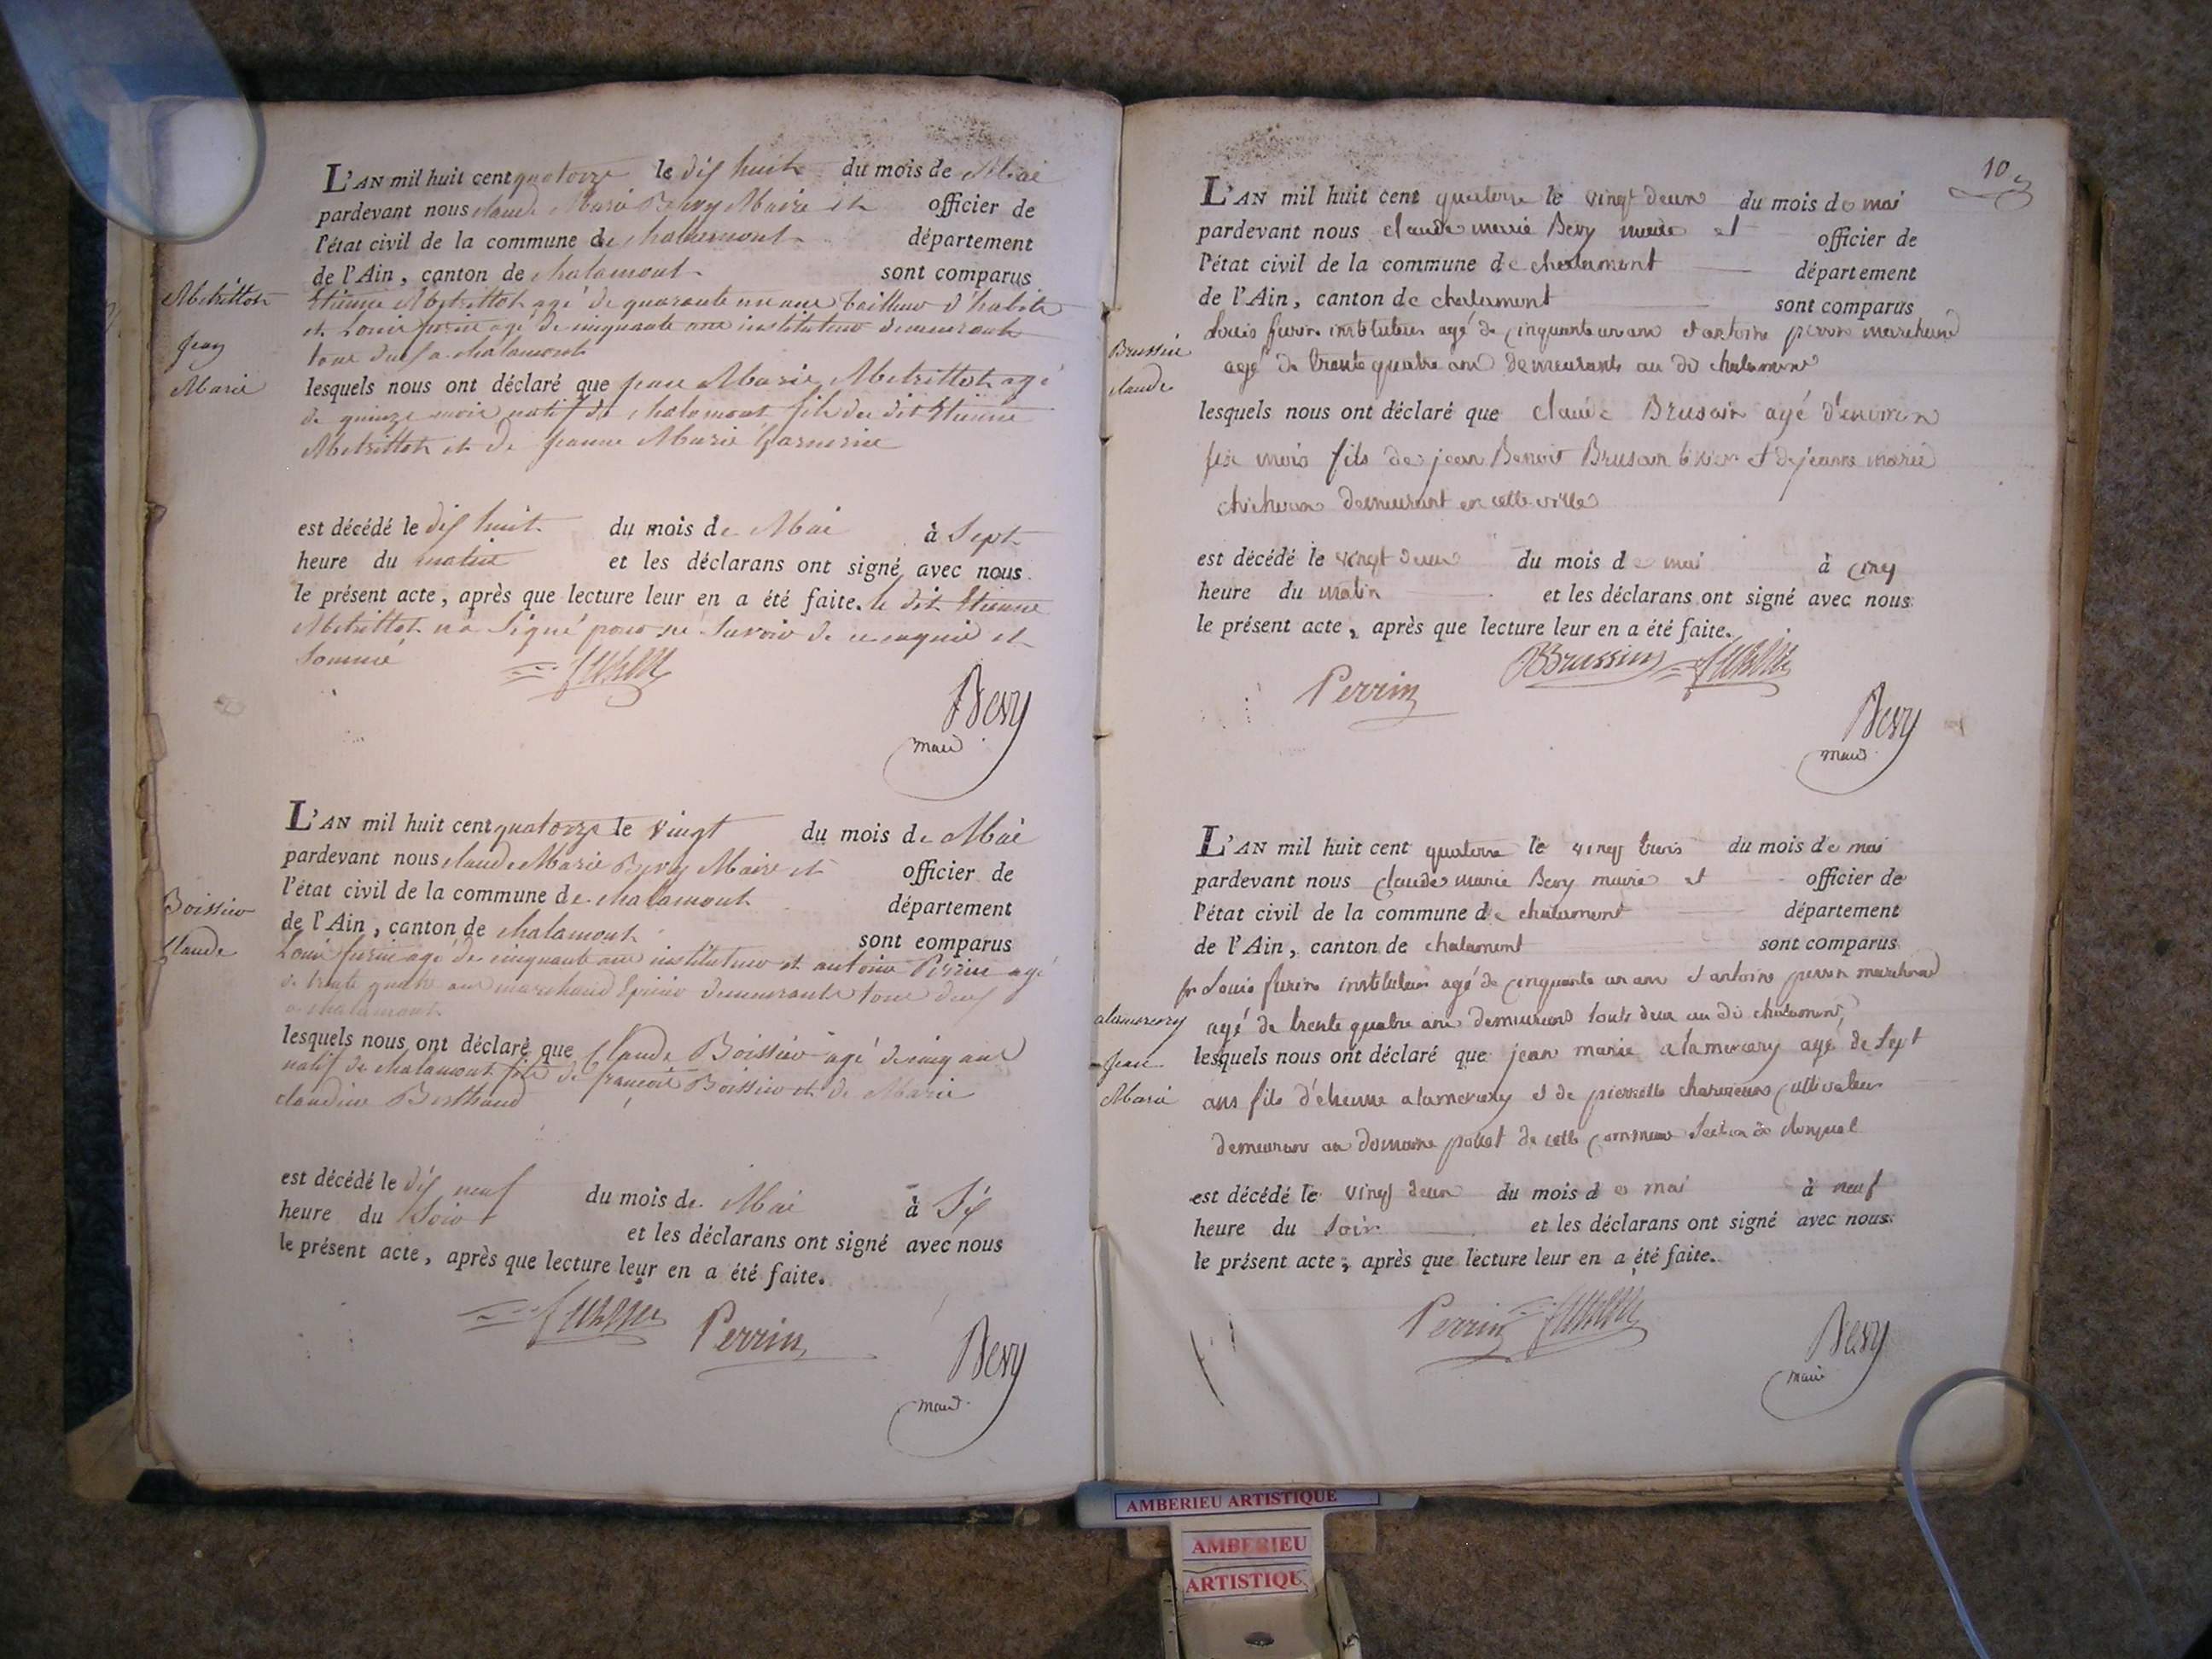 L'AN mil huit cent quatorze le dix huit du mois de Mai
pardevant nous claude Marie Bevy Maire et officier de
l'état civil de la commune de chalamont département
de l'Ain, canton de chalamont sont comparus
Metrittot
Jean
Marie
Etienne Metrittot agé de quarante un ans tailleur d'habits
et Louis furin agé de cinquante ans instituteur demeurants
tous deux a chalamont
lesquels nous ont déclaré que jean Marie Metrittot agé
de quinze mois natif de chalamont fils du dit Etienne
Metrittot et de Jeanne Marie
est décédé le dix huit du mois de Mai à Sept
heure du matin et les déclarans ont signé avec nous
le présent acte, après que lecture leur en a été faite. le dit Etienne
Metrittot n'a Signé pour ne Savoir de ce requis et
Sommé
Bevy
maire
L'AN mil huit cent quatorze le vingt du mois de Mai
pardevant nous claude Marie Bevy Maire et officier de
l'état civil de la commune de chalamont département
de l'Ain, canton de chalamont sont comparus
Boissieu
Claude
Louis furin agé de cinquante ans instituteur et antoine Perrin agé
de trente quatre ans marchand Epicier demeurants tous deux
a chalamont
lesquels nous ont déclaré que Claude Boissieu agé de cinq ans
natif de chalamont fils de françois Boissieu et de Marie
claudine Berthaud
est décédé le dix neuf du mois de Mai à Six
heure du Soir et les déclarans ont signé avec nous
le présent acte, après que lecture leur en a été faite.
Perrin
Bevy
maire
10
L'AN mil huit cent quatorze le vingt deux du mois de mai
pardevant nous claude marie Bevy maire et officier de
l'état civil de la commune de chalamont département
de l'Ain, canton de chalamont sont comparus
Brussin
claude
Louis furin instituteur agé de cinquante un ans et antoine perrin marchand
agé de trente quatre ans demeurants au dit chalamont
lesquels nous ont déclaré que claude Brusain agé d'environ
six mois fils de jean Benoit Brusain et de jeanne marie
demeurant en cette ville
est décédé le vingt deux du mois de mai à cinq
heure du matin et les déclarans ont signé avec nous
le présent acte, après que lecture leur en a été faite.
Perrin BBrussin
Bevy
maire
L'AN mil huit cent quatorze le vingt trois du mois de mai
pardevant nous claude marie Bevy maire et officier de
l'état civil de la commune de chalamont département
de l'Ain, canton de chalamont sont comparus
alamercery
Jean
Marie
Louis furin instituteur agé de cinquante un ans et antoine perrin marchand
agé de trente quatre ans demeurans touts deux au dit chalamont
lesquels nous ont déclaré que jean marie alamercery agé de Sept
ans fils d'étienne alamercery et de pierrette cultivateur
demeurant au domaine de cette commune Section de
est décédé le vingt deux du mois de mai à neuf
heure du Soir et les déclarans ont signé avec nous
le présent acte, après que lecture leur en a été faite.
Perrin
Bevy
maire
AMBERIEU ARTISTIQUE
AMBERIEU
ARTISTIQU